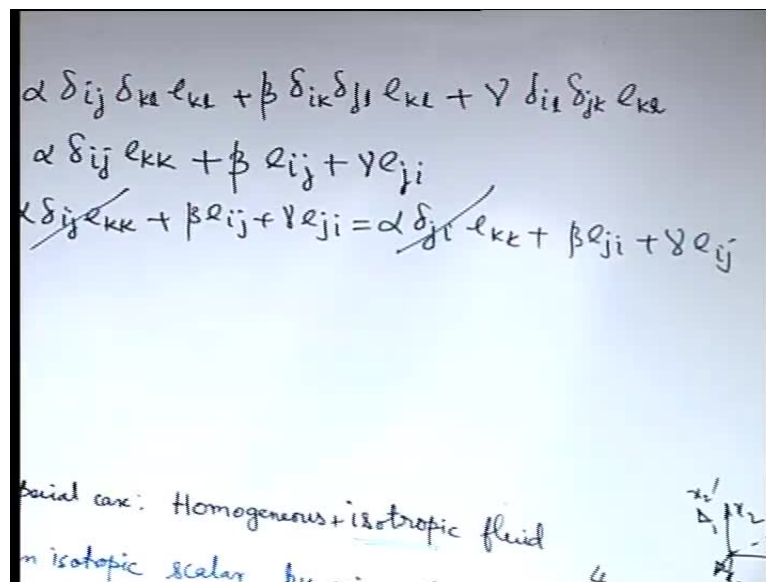 α δij δkl ekl + β δik δjl ekl + γ δil δjk ekl
α δij ekk + β eij + γ eji
α δij ekk + β eij + γ eji = α δji ekk + β eji + γ eij
pecial case: Homogeneous + isotropic fluid
x2' x2
n isotopic scalar